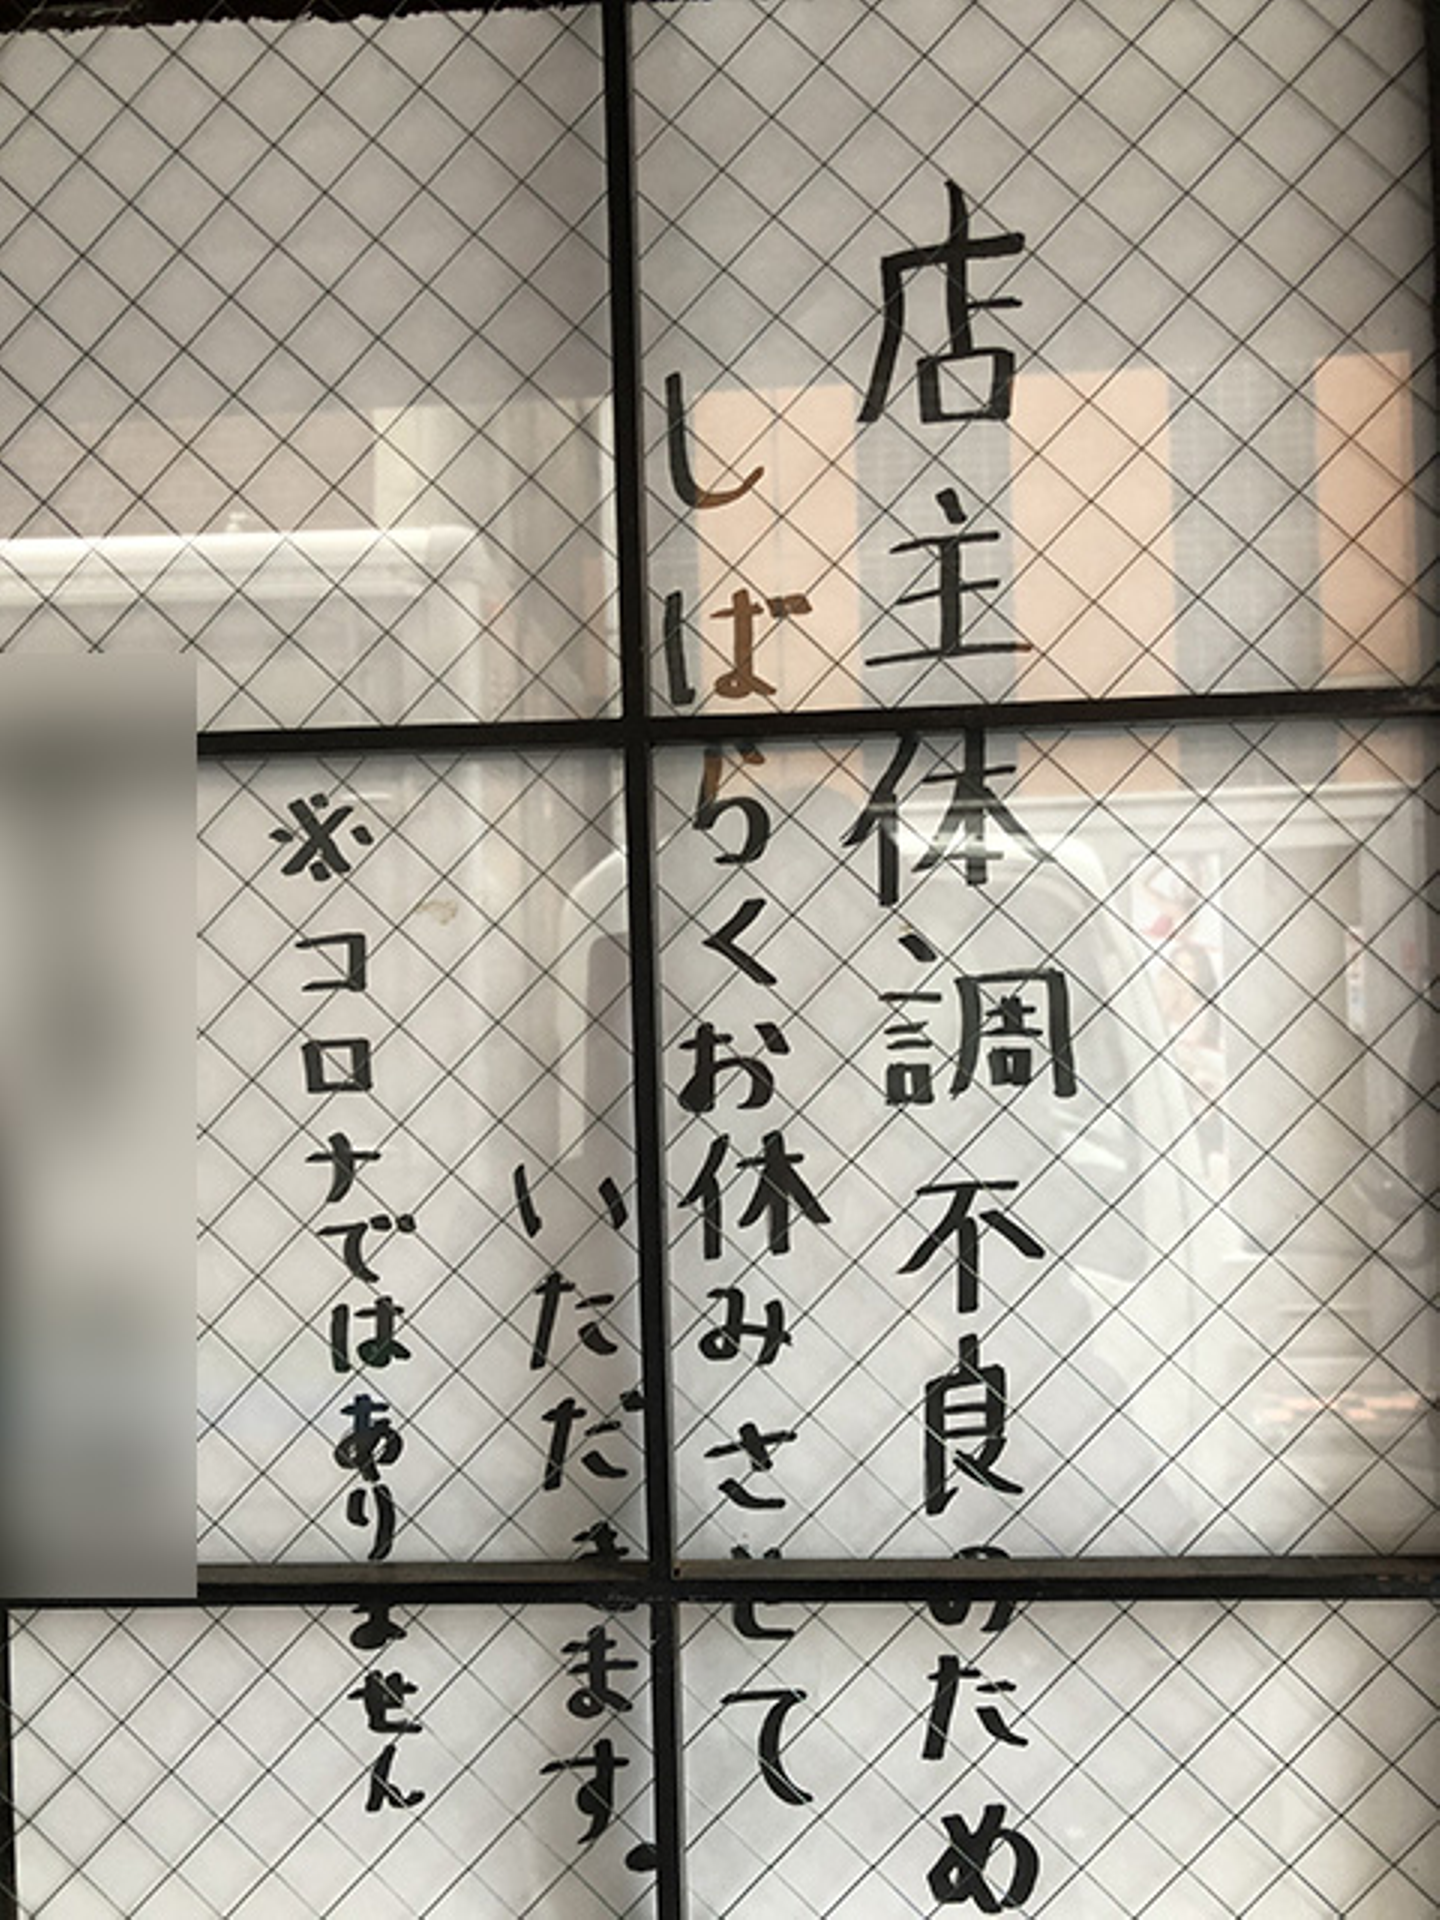 店主体調不良のため
しばらくお休みさせて
いただきます.
※コロナではありません